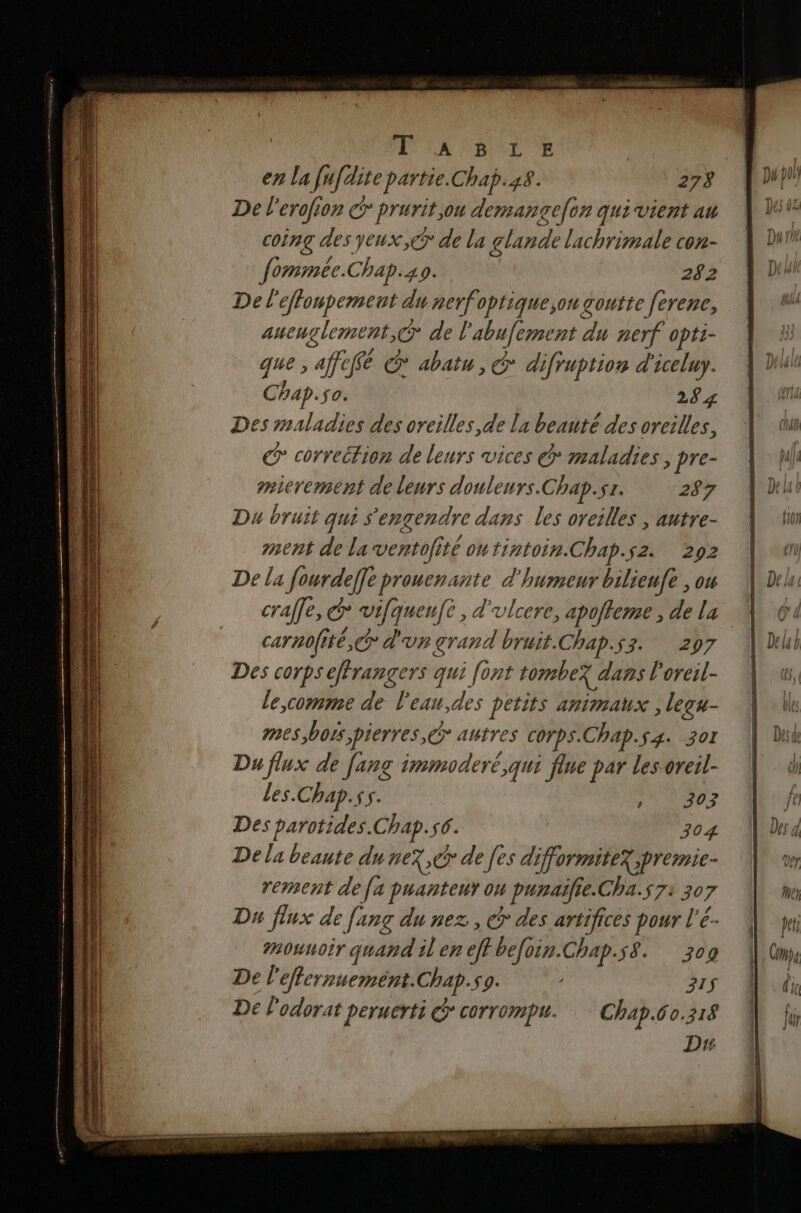 TABLE
en la ſuſdite partie.Chap.48. 278
De l'eroſion & prurit,ou demangeſon qui vient au
coing des yeux,& de la glande lachrimale con-
ſommée.Chap.49. 282
De l'eſtoupement du nerf optique,ou goutte ſerene,
aueuglement,& de l'abuſement du nerf opti-
que , affeſſé & abatu , & diſruption d'iceluy.
Chap.50. 284
Des maladies des oreilles,de la beauté des oreilles,
& correction de leurs vices & maladies , pre-
mierement de leurs douleurs.Chap.51. 287
Du bruit qui s'engendre dans les oreilles , autre-
ment de la ventoſité ou tintoin.Chap.52. 292
De la ſourdeſſe prouenante d'humeur bilieuſe , ou
craſſe, & viſqueuſe , d'vlcere, apoſteme , de la
carnoſité,& d'vn grand bruit.Chap.53. 297
Des corps eſtrangers qui ſont tombez dans l'oreil-
le,comme de l'eau,des petits animaux , legu-
mes,bois,pierres,& autres corps.Chap.54. 301
Du flux de ſang immoderé,qui flue par les oreil-
les.Chap.55. 303
Des parotides.Chap.56. 304
De la beaute du nez,& de ſes difformitez,premie-
rement de ſa puanteur ou punaiſie.Cha.57. 307
Du flux de ſang du nez , & des artifices pour l'é-
mouuoir quand il en eſt beſoin.Chap.58. 309
De l'eſternuemént.Chap.59. 315
De l'odorat peruerti & corrompu. Chap.60.318
Du